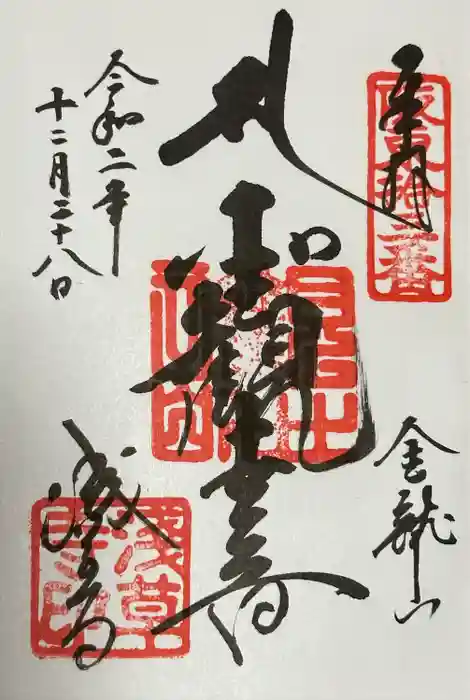 奉拝
坂東拾三番
金龍山
聖観世音
令和二年
十二月二十八日
浅草寺